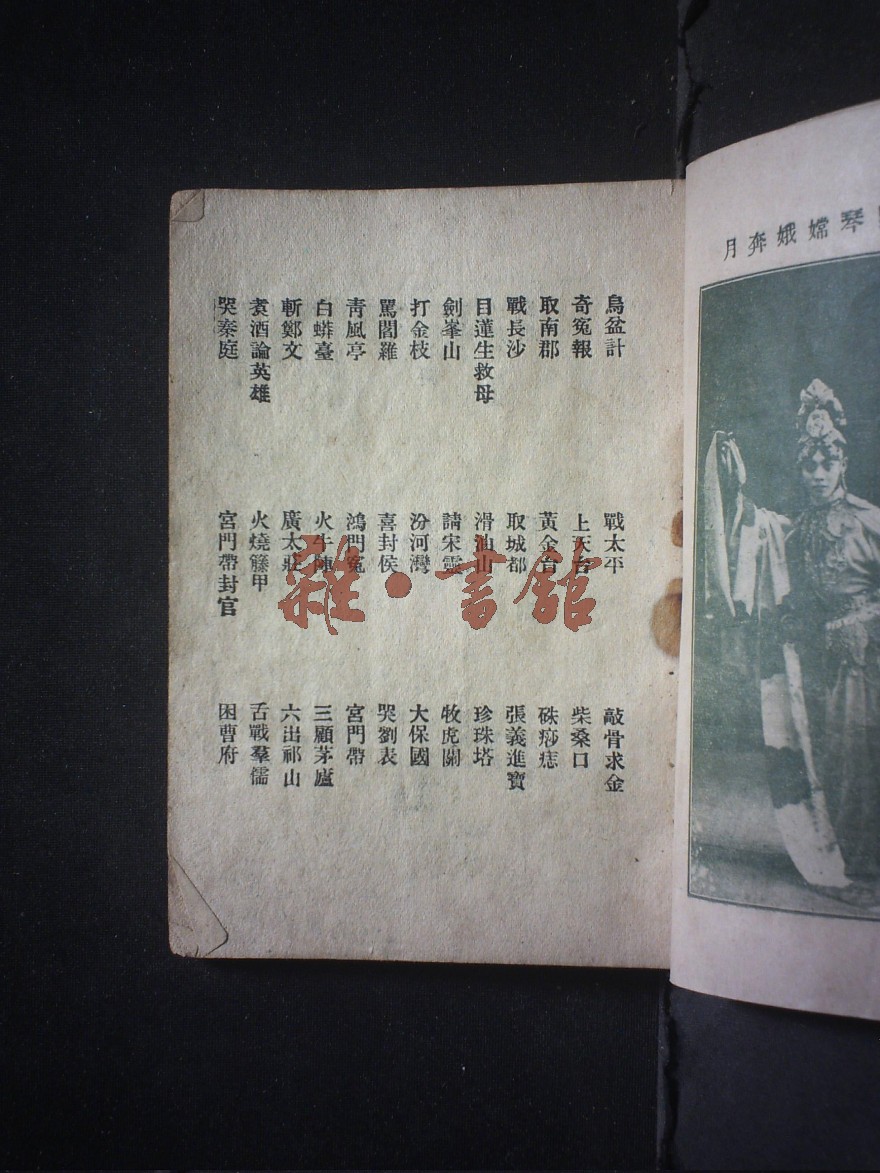 烏盆計
奇冤報
取南郡
戰長沙
目蓮生救母
劍峯山
打金枝
罵閻羅
青風亭
白蟒臺
斬鄭文
袁酒論英雄
哭秦庭
戰太平
上天台
黃金台
取城都
滑油山
請宋靈
汾河灣
喜封侯
鴻門冤
火牛陣
廣太莊
火燒籐甲
宮門帶封官
敲骨求金
柴桑口
硃痧痣
張義進寶
珍珠塔
牧虎關
大保國
哭劉表
宮門帶
三顧茅廬
六出祁山
舌戰羣儒
困曹府
琴嫦娥奔月
雜·書館